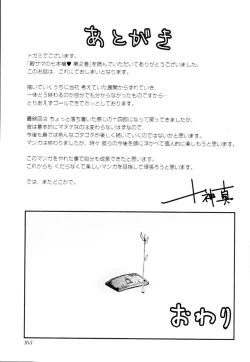 あとがき
トガミでございます。
「殿サマの七本槍♥ 第2巻」を読んでいただいてありがとうございました。
このお話は、これにておしまいとなります。
描いていくうちに当初 考えていた展開からすれていき、
一体どう終わるのか自分でも分からなかったものですから…
とりあえずゴールできてホッとしております。
最終回は ちょっと落ち着いた感じの十四的になって戻ってきましたが、
彼は基本的にマヌケなのは変わらないはずなので、
今後も皆では色んなゴタゴタが楽しく続いていくのではないかと思います。
マンガは終わりましたが、時々 彼らの今後を頭に浮かべて個人的に楽しもうと思います。
このマンガをやれた事で自分も成長できたと思います。
これからも くだらなくて楽しいマンガを目指して頑張ろうと思います。
では、またどこかで。
十神真
おわり
163